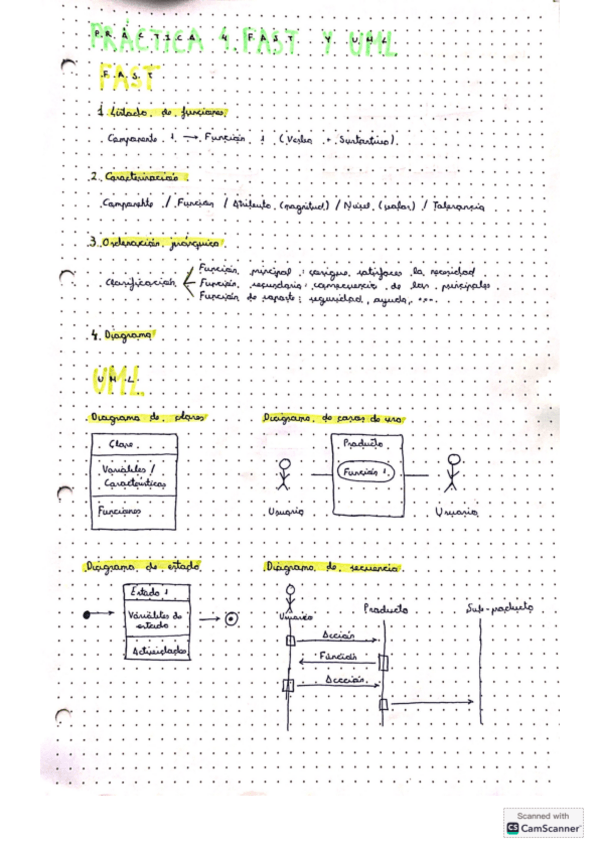 PRÁCTICA 4. FAST Y UML
FAST
1. Listado de funciones
Componente 1 → Función 1 (Verbo + Sustantivo).
2. Caracterización
Componente / Función / Atributo (magnitud) / Nivel (valor) / Tolerancia
3. Ordenación jerárquica
Clasificación
Función principal: consigue satisfacer la necesidad
Función secundaria: consecuencia de las principales
Función de soporte: seguridad, ayuda, ....
4. Diagrama
UML
Diagrama de clases
Diagrama de casos de uso
Clase
Variables /
Características
Funciones
Producto
Función 1
Usuario
Usuario
Diagrama de estado
Diagrama de secuencia
Estado 1
Variables de
estado
Actividades
Usuario
Producto
Sub-producto
Acción
Función
Acción
Scanned with
CS CamScanner